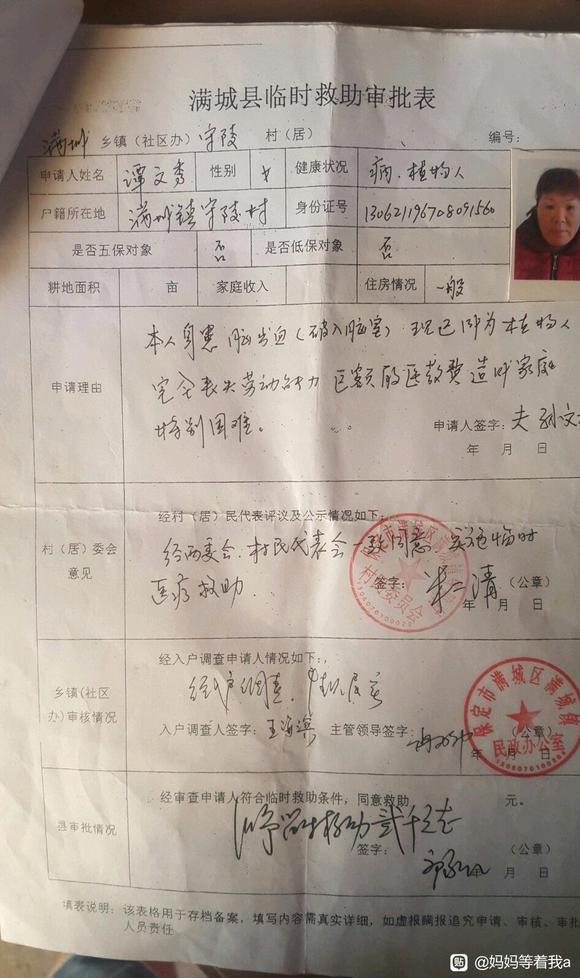 满城县临时救助审批表
满城 乡镇（社区办）守陵 村（居） 编号：
申请人姓名 谭文秀 性别 女 健康状况 病．植物人
户籍所在地 满城镇守陵村 身份证号 130621196708091560
是否五保对象 否 是否低保对象 否
耕地面积 亩 家庭收入 住房情况 一般
申请理由
本人身患脑出血（破入脑室）现已即为植物人
完全丧失劳动能力 巨额的医药费造成家庭
特别困难。
申请人签字：夫 孙文
年 月 日
村（居）委会
意见
经村（居）民代表评议及公示情况如下：
经两委会．村民代表会一致同意 实施临时
医疗救助．
签字： （公章）
年 月 日
保定市满城区满城镇
村民委员会
乡镇（社区
办）审核情况
经入户调查申请人情况如下：，
经入户调查，
入户调查人签字：王海滨 主管领导签字： （公章）
年 月 日
保定市满城区满城镇
民政办公室
县审批情况
经审查申请人符合临时救助条件，同意救助 元。
贰千元
签字： （公章）
年 月 日
填表说明：该表格用于存档备案，填写内容需真实详细，如虚报瞒报追究申请、审核、审批
人员责任
贴 @妈妈等着我a